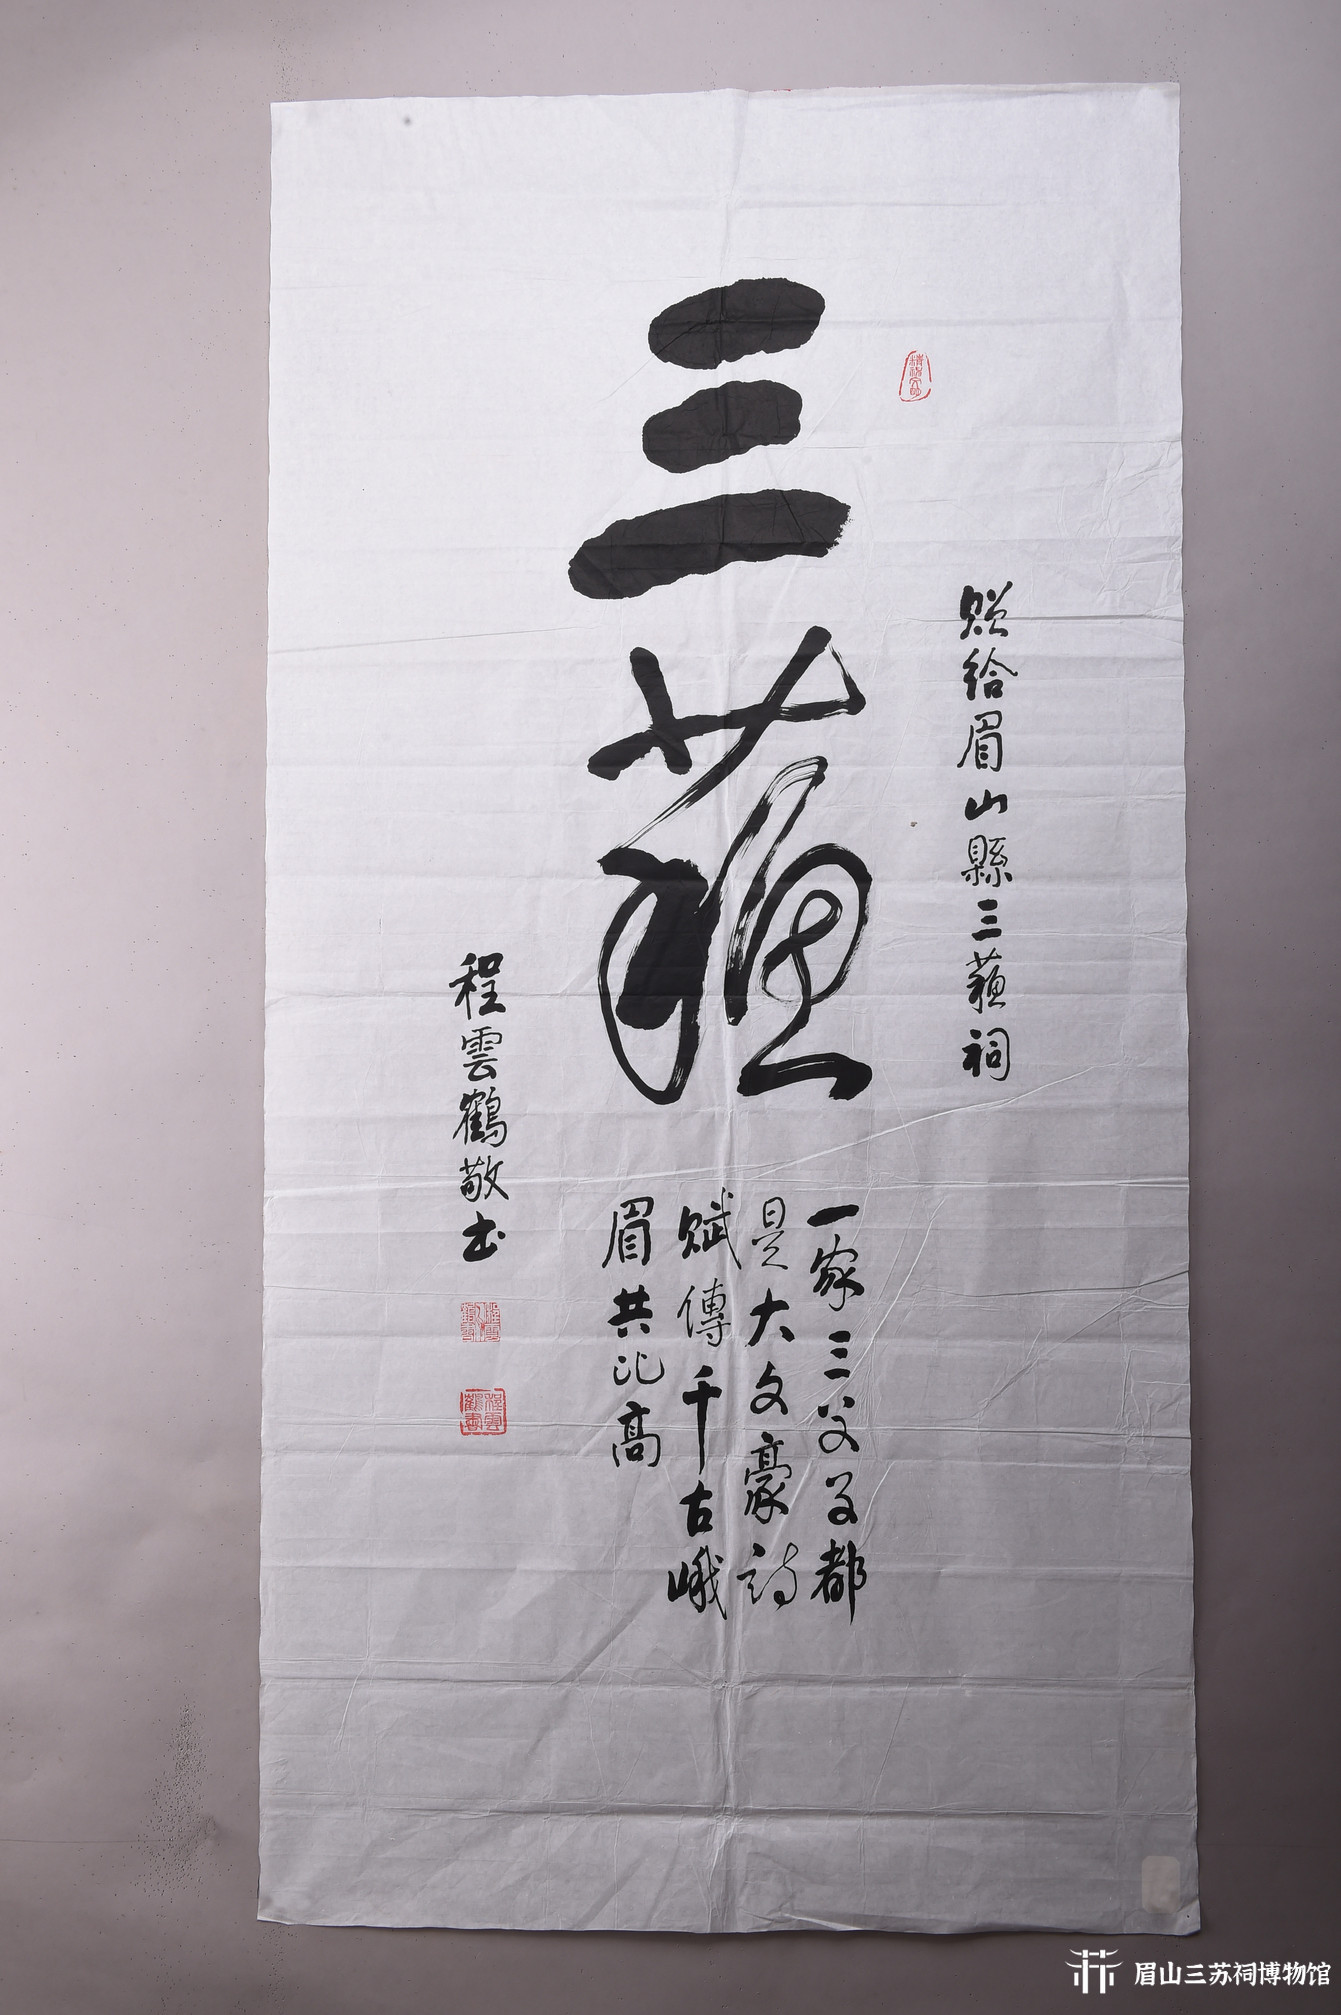 贈給眉山縣三蘇祠
三蘇
一家三父子都
是大文豪詩
賦傳千古峨
眉共比高
程雲鶴敬书
程雲鶴書
眉山三苏祠博物馆